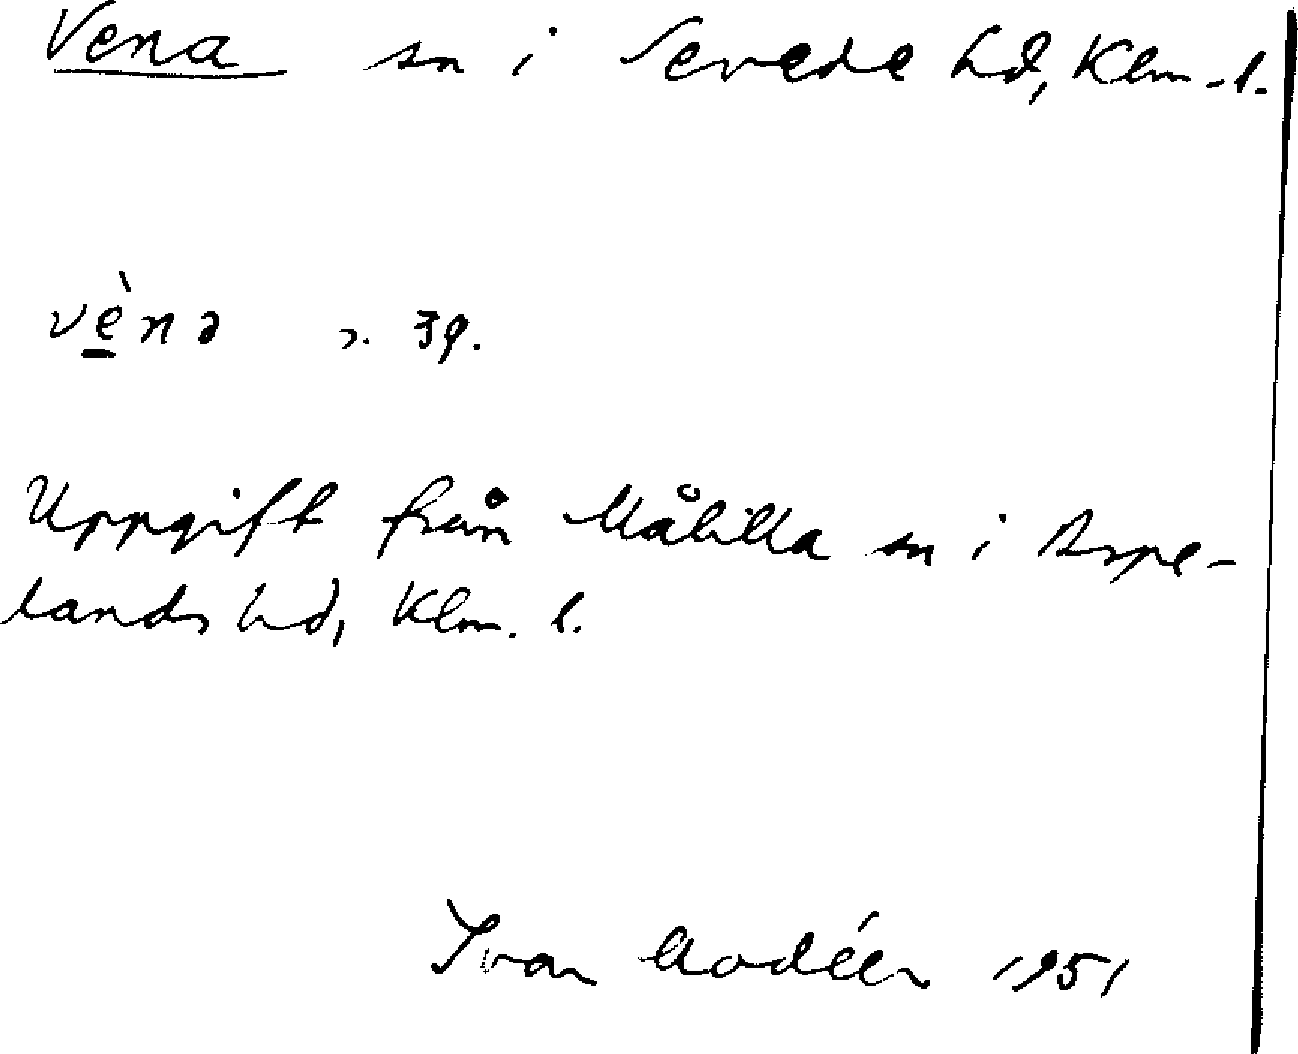 Vena sn i Sevede hd, Klm. l.
vènə s. 39.
Uppgift från Målilla sn i Aspe-
lands hd, Klm. l.
Ivar Modéer 1951